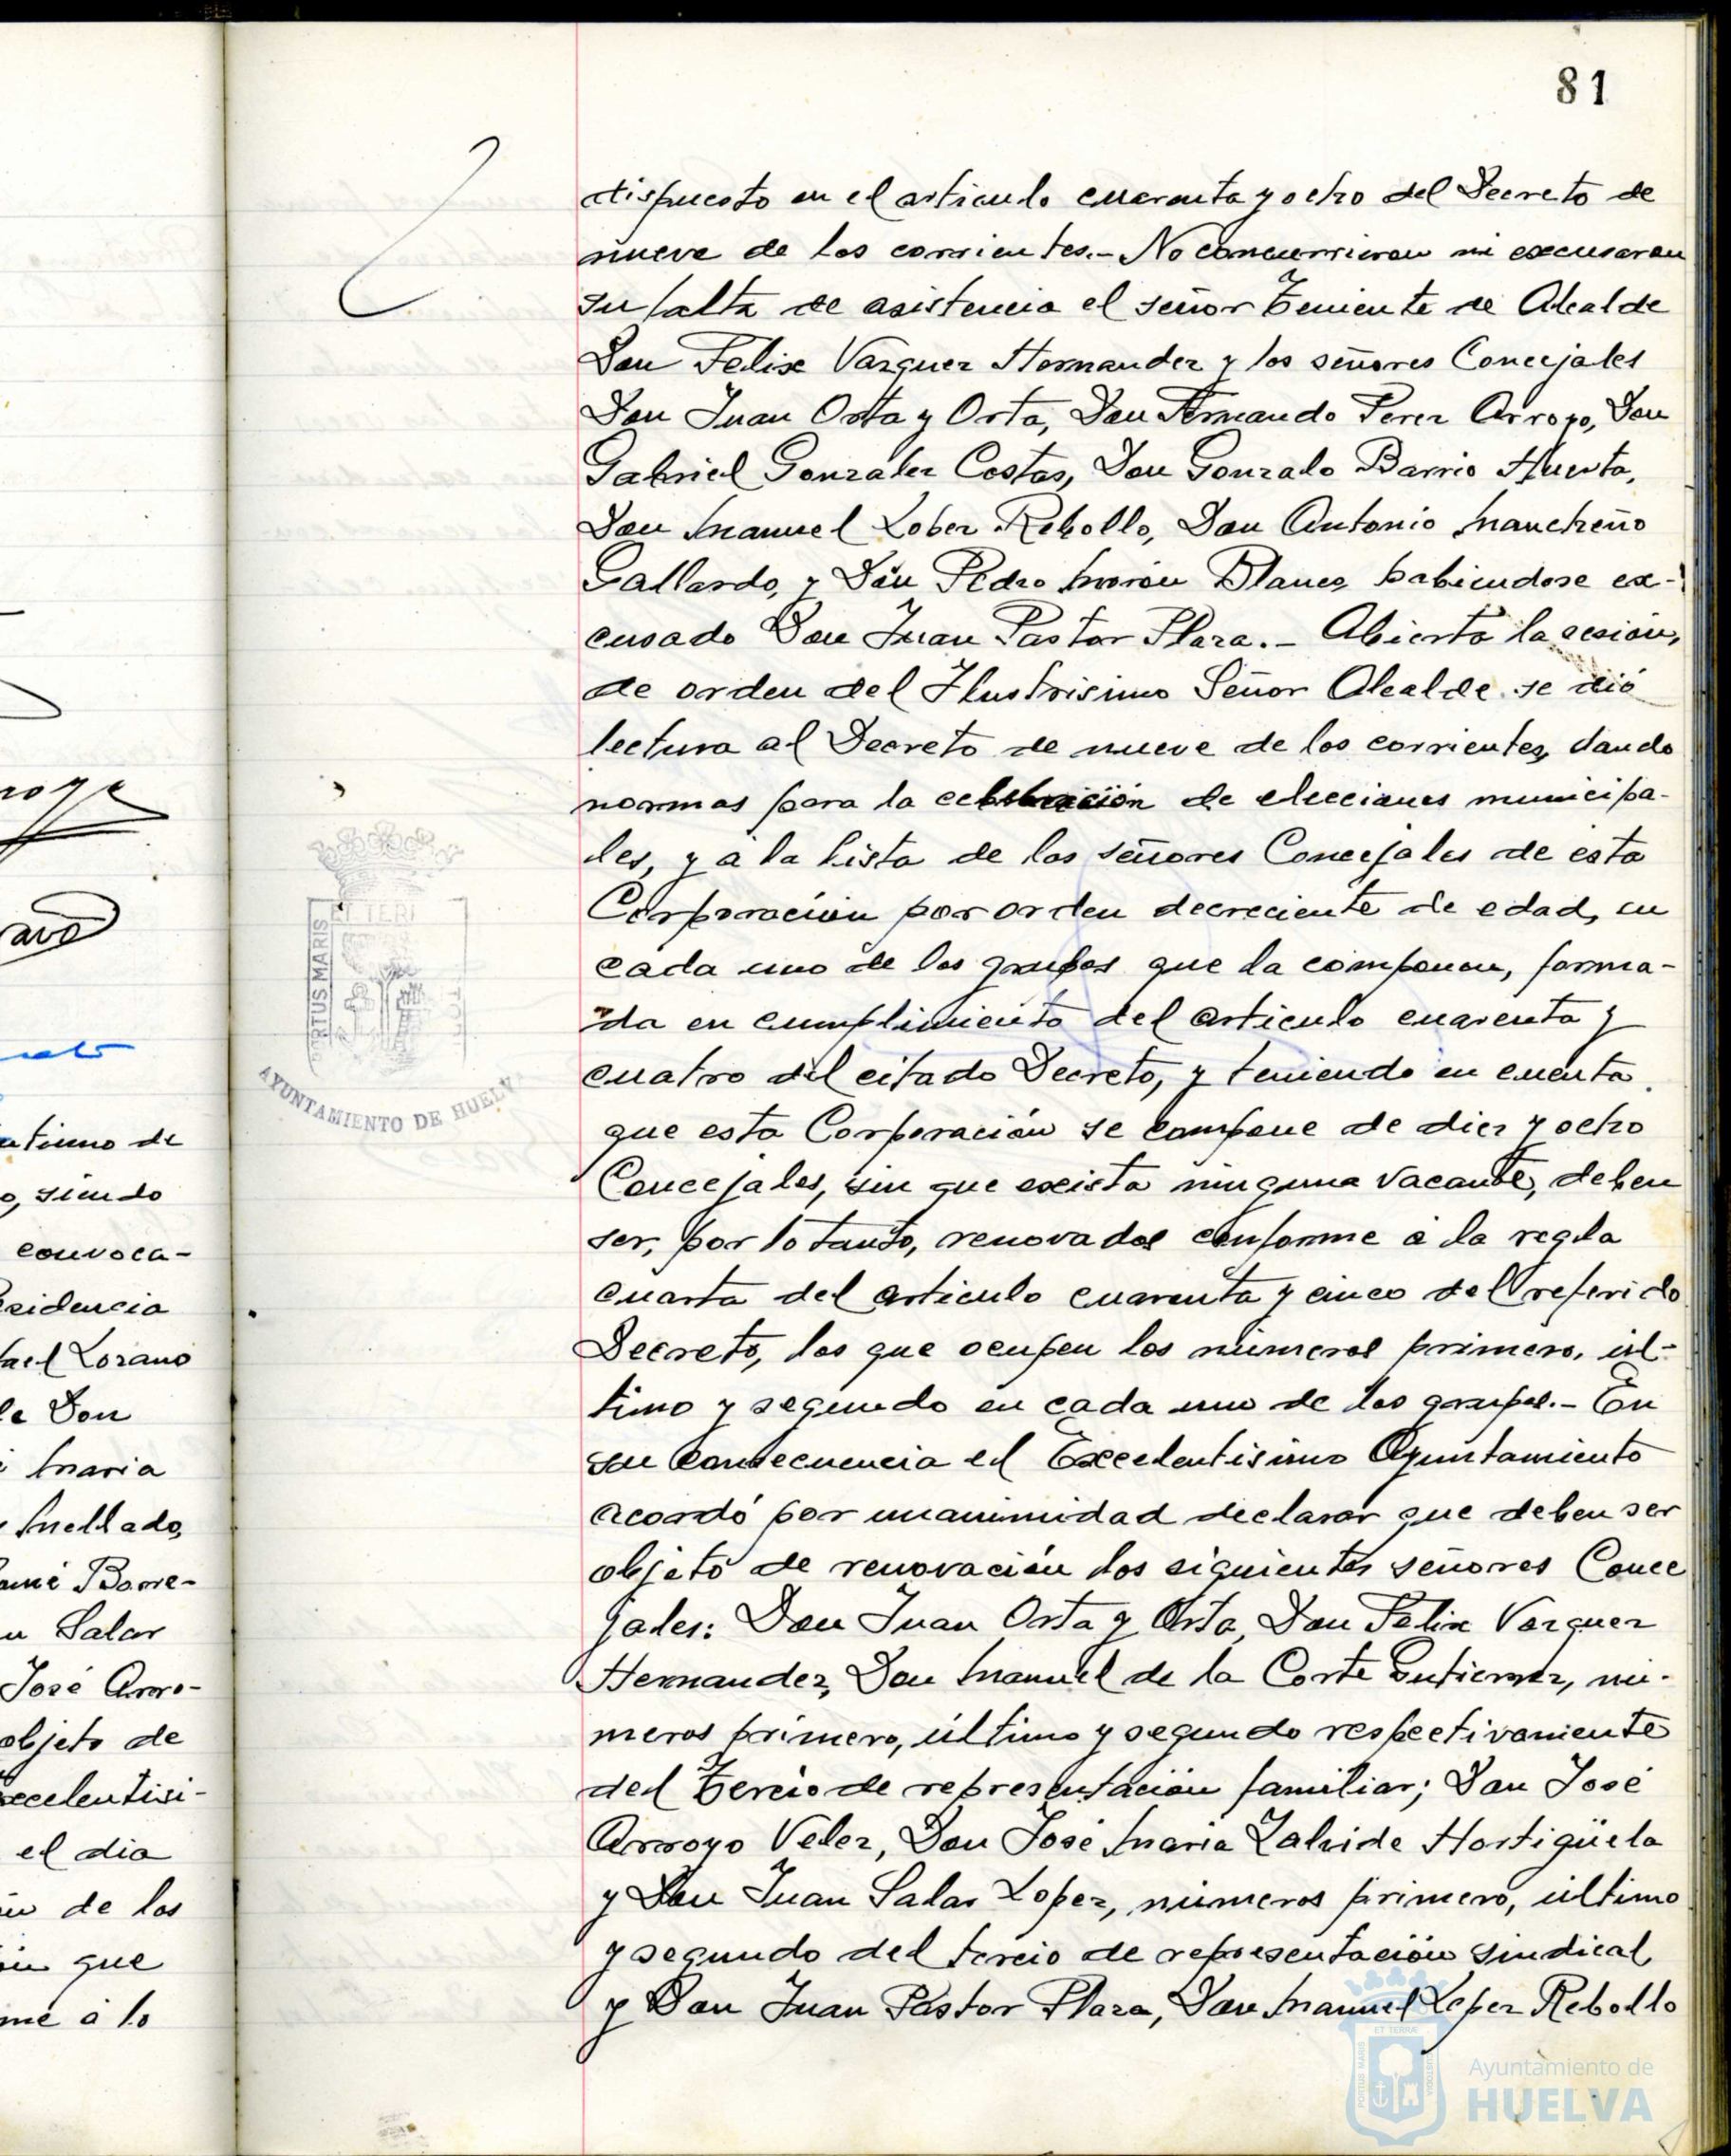 81
dispuesto en el articulo cuarenta y ocho del Decreto de
nueve de los corrientes.- No concurrieron ni excusaron
su falta de asistencia el señor Teniente de Alcalde
Don Felix Vazquez Hernandez y los señores Concejales
Don Juan Orta y Orta, Don Armando Perez Arroyo, Don
Gabriel Gonzalez Costas, Don Gonzalo Barrio Huerta,
Don Manuel Lopez Rebollo, Don Antonio Mancheño
Gallardo, y Don Pedro Morón Blanco, habiendose ex-
cusado Don Juan Pastor Plaza.- Abierta la sesión,
de orden del Ilustrisimo Señor Alcalde se dió
lectura al Decreto de nueve de los corrientes, dando
normas para la celebración de elecciones municipa-
les, y á la lista de los señores Concejales de esta
Corporación por orden decreciente de edad, en
cada uno de los grupos que la componen, forma-
da en cumplimiento del articulo cuarenta y
cuatro del citado Decreto, y teniendo en cuenta
que esta Corporación se compone de diez y ocho
Concejales, sin que exista ninguna vacante, deben
ser, por lo tanto, renovados conforme á la regla
cuarta del articulo cuarenta y cinco del referido
Decreto, los que ocupen los números primero, úl-
timo y segundo en cada uno de los grupos.- En
su consecuencia el Excelentisimo Ayuntamiento
acordó por unanimidad declarar que deben ser
objeto de renovación los siguientes señores Conce
jales: Don Juan Orta y Orta, Don Felix Vazquez
Hernandez, Don Manuel de la Corte Gutierrez, nú-
meros primero, último y segundo respectivamente
del Tercio de representación familiar; Don José
Arroyo Velez, Don José Maria Zalvide Hortigüela
y Don Juan Salas Lopez, números primero, último
y segundo del tercio de representación sindical,
y Don Juan Pastor Plaza, Don Manuel Lopez Rebollo
ET TERR
PORTUS MARIS
AYUNTAMIENTO DE HUELVA
timo de
o, siendo
convoca-
esidencia
fael Lozano
le Don
Maria
Mellado,
Borre-
Salar
José Arro-
objeto de
xcelentisi-
el dia
de los
que
me á lo
Ayuntamiento de
HUELVA